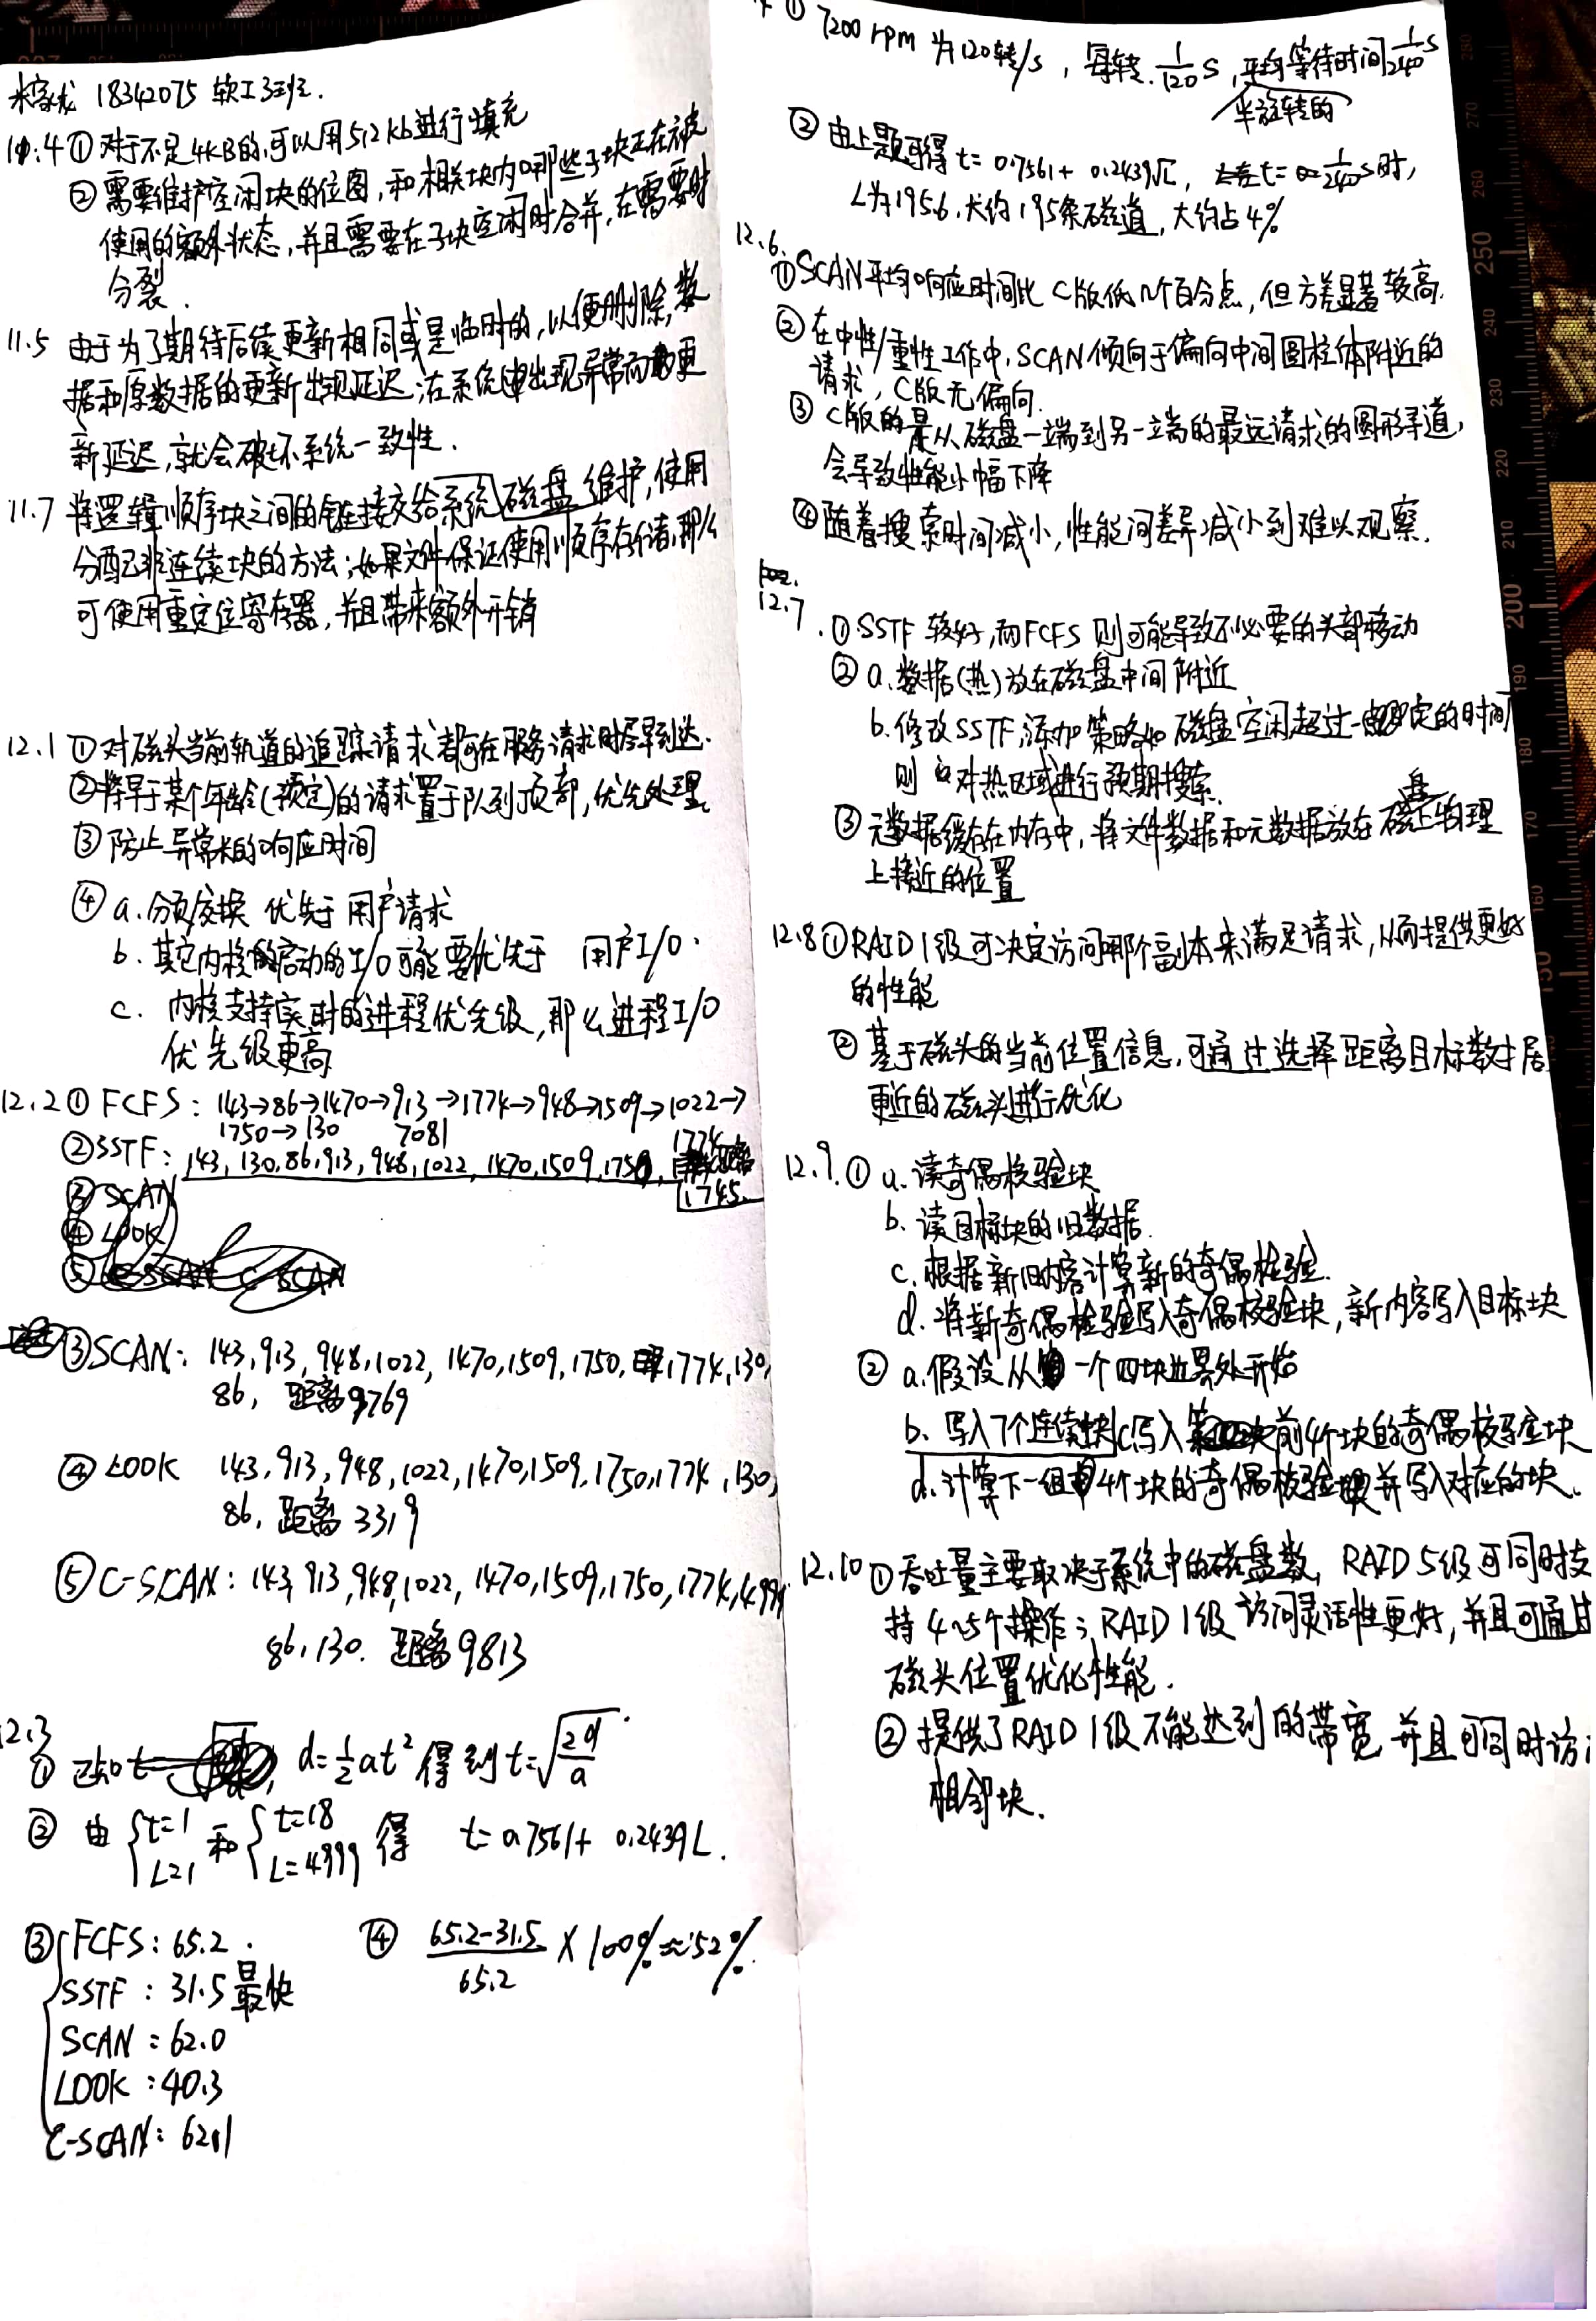 18342075 软工3班.
①对于不足4KB的,可以用512kb进行填充
②需要维护空闲块的位图,和相关块内哪些子块正在被
使用的额外状态,并且需要在子块空闲时合并,在需要时
分裂.
11.5 由于为了期待后续更新相同或是临时的,以便删除,数
据和原数据的更新出现延迟;在系统出现异常而更
新延迟,就会破坏系统一致性.
11.7 将逻辑顺序块之间的链接交给系统磁盘维护,使用
分配非连续块的方法;如果文件保证使用顺序存储,那么
可使用重定位寄存器,并且带来额外开销
12.1 ①对磁头当前轨道的追踪请求都可在服务请求时尽早到达.
②将早于某个年龄(预定)的请求置于队列顶部,优先处理.
③防止异常长的响应时间
④ a.分页/交换 优先于 用户请求
b. 其它内核启动的I/O可能要优先于 用户I/O.
c. 内核支持实时的进程优先级,那么进程I/O
优先级更高
12.2 ① FCFS: 143→86→1470→913→1774→948→1509→1022→
1750→130 7081
②SSTF: 143, 130, 86, 913, 948, 1022, 1470, 1509, 1750, 1774
1745.
③SCAN: 143, 913, 948, 1022, 1470, 1509, 1750, 1774, 130,
86, 距离9769
④ LOOK 143, 913, 948, 1022, 1470, 1509, 1750, 1774, 130,
86, 距离 3319
⑤ C-SCAN: 143, 913, 948, 1022, 1470, 1509, 1750, 1774, 4999
86, 130. 距离9813
12.3
① 已知 d=½at² 得到 t=√(2d/a).
② 由 {t=1 L=1 和 {t=18 L=4999 得 t=0.7561+ 0.2439L.
③ FCFS: 65.2.
SSTF: 31.5 最快
SCAN: 62.0
LOOK: 40.3
C-SCAN: 62.1
④ (65.2-31.5)/65.2 × 100% ≈ 52%.
① 7200 rpm 为120转/s, 每转 1/120 s, 平均等待时间 1/240 s
半旋转的
② 由上题可得 t= 0.7561+ 0.2439√L, 在t= 1/240 s时,
L为195.6, 大约195条磁道, 大约占4%
12.6.
①SCAN平均响应时间比C版低几个百分点,但方差显著较高.
②在中性/重性工作中, SCAN倾向于偏向中间圆柱体附近的
请求, C版无偏向.
③ C版的是从磁盘一端到另一端的最远请求的圆形寻道,
会导致性能小幅下降
④随着搜索时间减小,性能间差异减小到难以观察.
12.7
①SSTF 较好,而FCFS 则可能导致不必要的头部移动
② a.数据(热)放在磁盘中间附近
b.修改SSTF,添加策略如磁盘空闲超过一定的时间
则对热区域进行预期搜索.
③元数据缓存在内存中,将文件数据和元数据放在磁盘上物理
上接近的位置
12.8 ①RAID 1级可决定访问哪个副本来满足请求,从而提供更好
的性能
② 基于磁头的当前位置信息,可通过选择距离目标数据
更近的磁头进行优化
12.9. ① a.读奇偶校验块
b. 读目标块的旧数据.
c. 根据新旧内容计算新的奇偶检验.
d. 将新奇偶检验写入奇偶校验块,新内容写入目标块
② a.假设从一个四块边界处开始
b. 写入7个连续块 c.写入前4个块的奇偶校验块
d.计算下一组4个块的奇偶校验并写入对应的块.
12.10 ①吞吐量主要取决于系统中的磁盘数, RAID 5级可同时支
持4~5个操作; RAID 1级访问灵活性更好,并且可通过
磁头位置优化性能.
② 提供了RAID 1级不能达到的带宽 并且可同时访
相邻块.